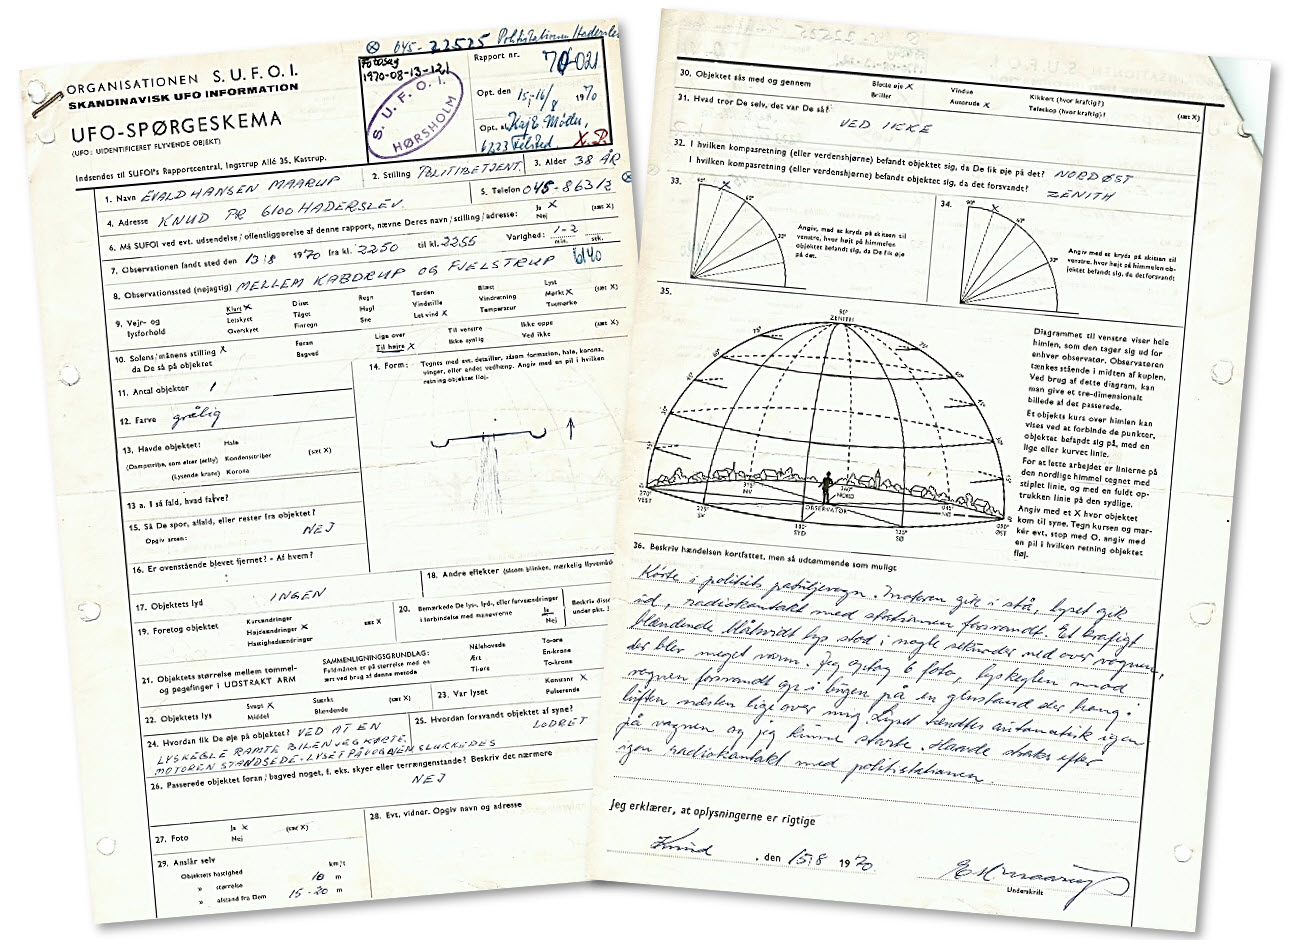 045-22525 Politistationen Haderslev
ORGANISATIONEN S.U.F.O.I.
SKANDINAVISK UFO INFORMATION
UFO-SPØRGESKEMA
(UFO: UIDENTIFICERET FLYVENDE OBJEKT)
Indsendes til SUFOI's Rapportcentral, Ingstrup Allé 35, Kastrup.
Fotosag
1970-08-13-121
S. U. F. O. I.
HØRSHOLM
Rapport nr. 70-021
Opt. den 15-16/8 1970
Opt. af Kaj E. Møller,
6223 Felsted
1. Navn EVALD HANSEN MAARUP
2. Stilling POLITIBETJENT.
3. Alder 38 ÅR
4. Adresse KNUD PR 6100 HADERSLEV.
5. Telefon 045-86312
6. Må SUFOI ved evt. udsendelse/offentliggørelse af denne rapport, nævne Deres navn/stilling/adresse: Ja X (sæt X)
Nej
7. Observationen fandt sted den 13/8 1970 fra kl. 2250 til kl. 2255 Varighed: 1-2
min. sek.
8. Observationssted (nøjagtig) MELLEM KABDRUP OG FJELSTRUP 6140
9. Vejr- og lysforhold
Klart X Diset Regn Torden Blæst Lyst (sæt X)
Letskyet Tåget Hagl Vindstille Vindretning Mørkt X
Overskyet Finregn Sne Let vind X Temperatur Tusmørke
10. Solens/månens stilling X
da De så på objektet
Foran Lige over Til venstre Ikke oppe (sæt X)
Bagved Til højre X Ikke synlig Ved ikke
11. Antal objekter 1
12. Farve grålig
13. Havde objektet: Hale
(Dampstribe, som efter jetfly) Kondensstriber (sæt X)
(Lysende krans) Korona
13 a. I så fald, hvad farve?
14. Form: Tegnes med evt. detailler, såsom formation, hale, korona,
vinger, eller andet vedhæng. Angiv med en pil i hvilken
retning objektet fløj.
15. Så De spor, affald, eller rester fra objektet?
Opgiv arten: NEJ
16. Er ovenstående blevet fjernet? - Af hvem?
17. Objektets lyd INGEN
18. Andre effekter (såsom blinken, mærkelig flyvemåde
19. Foretog objektet
Kursændringer
Højdeændringer X sæt X
Hastighedsændringer
20. Bemærkede De lys-, lyd-, eller farveændringer
i forbindelse med manøvrerne
Ja
Nej
Beskriv disse
under pkt.
21. Objektets størrelse mellem tommel-
og pegefinger i UDSTRAKT ARM
SAMMENLIGNINGSGRUNDLAG:
Fuldmånen er på størrelse med en
ært ved brug af denne metode
Nålehovede To-øre
Ært En-krone
Ti-øre To-krone
22. Objektets lys
Svagt X Stærkt (sæt X)
Middel Blændende
23. Var lyset
Konstant X
Pulserende
24. Hvordan fik De øje på objektet? VED AT EN
LYSKEGLE RAMTE BILEN JEG KØRTE.
MOTOREN STANDSEDE. LYSET PÅ VOGNEN SLUKKEDES
25. Hvordan forsvandt objektet af syne?
LODRET
26. Passerede objektet foran/bagved noget, f. eks. skyer eller terrængenstande? Beskriv det nærmere
NEJ
27. Foto
Ja X (sæt X)
Nej
28. Evt. vidner. Opgiv navn og adresse
29. Anslår selv
Objektets hastighed km/t
» størrelse 10 m
» afstand fra Dem 15-20 m
30. Objektet sås med og gennem
Blotte øje X Vindue Kikkert (hvor kraftig?)
Briller Autorude X Teleskop (hvor kraftig)? (sæt X)
31. Hvad tror De selv, det var De så?
VED IKKE
32. I hvilken kompasretning (eller verdenshjørne) befandt objektet sig, da De fik øje på det? NORDØST
I hvilken kompasretning (eller verdenshjørne) befandt objektet sig, da det forsvandt? ZENITH
33.
90° X 60° 30°
Angiv, med et kryds på skitsen til
venstre, hvor højt på himmelen
objektet befandt sig, da De fik øje
på det.
34.
90° X 60° 30°
Angiv med et kryds på skitsen til
venstre, hvor højt på himmelen ob-
jektet befandt sig, da det forsvandt
35.
90°
ZENITH
270°
VEST
315°
NV
360°
NORD
45°
OBSERVATØR
225°
SV
180°
SYD
135°
SØ
090°
ØST
Diagrammet til venstre viser hele
himlen, som den tager sig ud for
enhver observatør. Observatøren
tænkes stående i midten af kuplen.
Ved brug af dette diagram, kan
man give et tre-dimensionalt
billede af det passerede.
Et objekts kurs over himlen kan
vises ved at forbinde de punkter,
objektet befandt sig på, med en
lige eller kurvet linie.
For at lette arbejdet er linierne på
den nordlige himmel tegnet med
stiplet linie, og med en fuldt op-
trukken linie på den sydlige.
Angiv med et X hvor objektet
kom til syne. Tegn kursen og mar-
kér evt. stop med O. angiv med
en pil i hvilken retning objektet
fløj.
36. Beskriv hændelsen kortfattet, men så udtømmende som muligt
Kørte i politiets patruljevogn. Motoren gik i stå, lyset gik
ud, radiokontakt med stationen forsvandt. Et kraftigt
blændende blåhvidt lys stod i nogle sekunder ned over vognen,
der blev meget varm. Jeg optog 6 foto, lyskeglen mod
vognen forsvandt op i bugen på en genstand der hang i
luften næsten lige over mig. Lyset tændtes automatisk igen
på vognen og jeg kunne starte. Havde straks efter
igen radiokontakt med politistationen.
Jeg erklærer, at oplysningerne er rigtige
Knud, den 15/8 1970.
E H Maarup
Underskrift